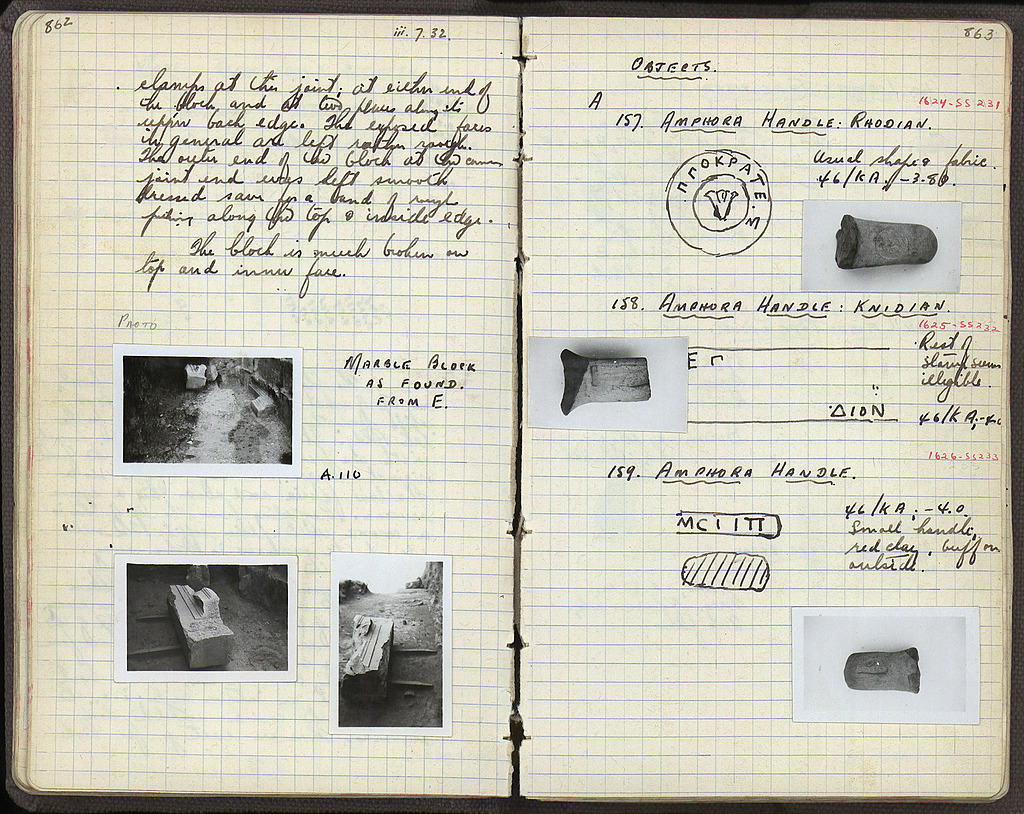 862
iii. 7. 32.
clamps at this joint; at either end of
the block and at two places along its
upper back edge. The exposed faces
in general are left rather rough.
The outer end of the block at the corner
joint end was left smooth
dressed save for a band of rough
along the top & inside edge.
The block is much broken on
top and inner face.
PHOTO
MARBLE BLOCK
AS FOUND.
FROM E.
A.110
863
OBJECTS.
A
1624-SS 231
157. AMPHORA HANDLE: RHODIAN.
Usual shape & fabric.
46/KA; -3.80.
ΠΠΟΚΡΑΤΕ
158. AMPHORA HANDLE: KNIDIAN.
1625-SS232
Rest of
stamp seems
illegible.
Ε Γ
ΔΙΟΝ
46/KA;
1626-SS233
159. AMPHORA HANDLE.
46/KA; -4.0
Small handle,
red clay, buff on
outside.